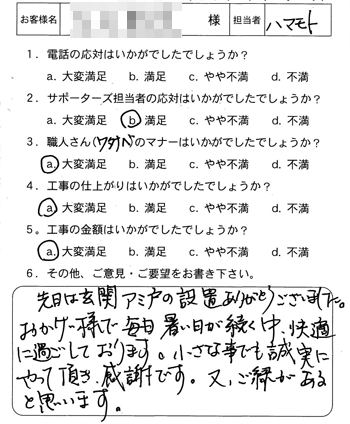 お客様名 様 担当者 ハマモト
1．電話の応対はいかがでしたでしょうか？
a. 大変満足 b. 満足 c. やや不満 d. 不満
2．サポーターズ担当者の応対はいかがでしたでしょうか？
a. 大変満足 b. 満足 c. やや不満 d. 不満
3．職人さん(ワタナベ)のマナーはいかがでしたでしょうか？
a. 大変満足 b. 満足 c. やや不満 d. 不満
4．工事の仕上がりはいかがでしたでしょうか？
a. 大変満足 b. 満足 c. やや不満 d. 不満
5。工事の金額はいかがでしたでしょうか？
a. 大変満足 b. 満足 c. やや不満 d. 不満
6．その他、ご意見・ご要望をお書き下さい。
先日は玄関アミ戸の設置ありがとうございました。
おかげ様で毎日暑い日が続く中、快適
に過ごしております。小さな事でも誠実に
やって頂き、感謝です。又、ご縁がある
と思います。